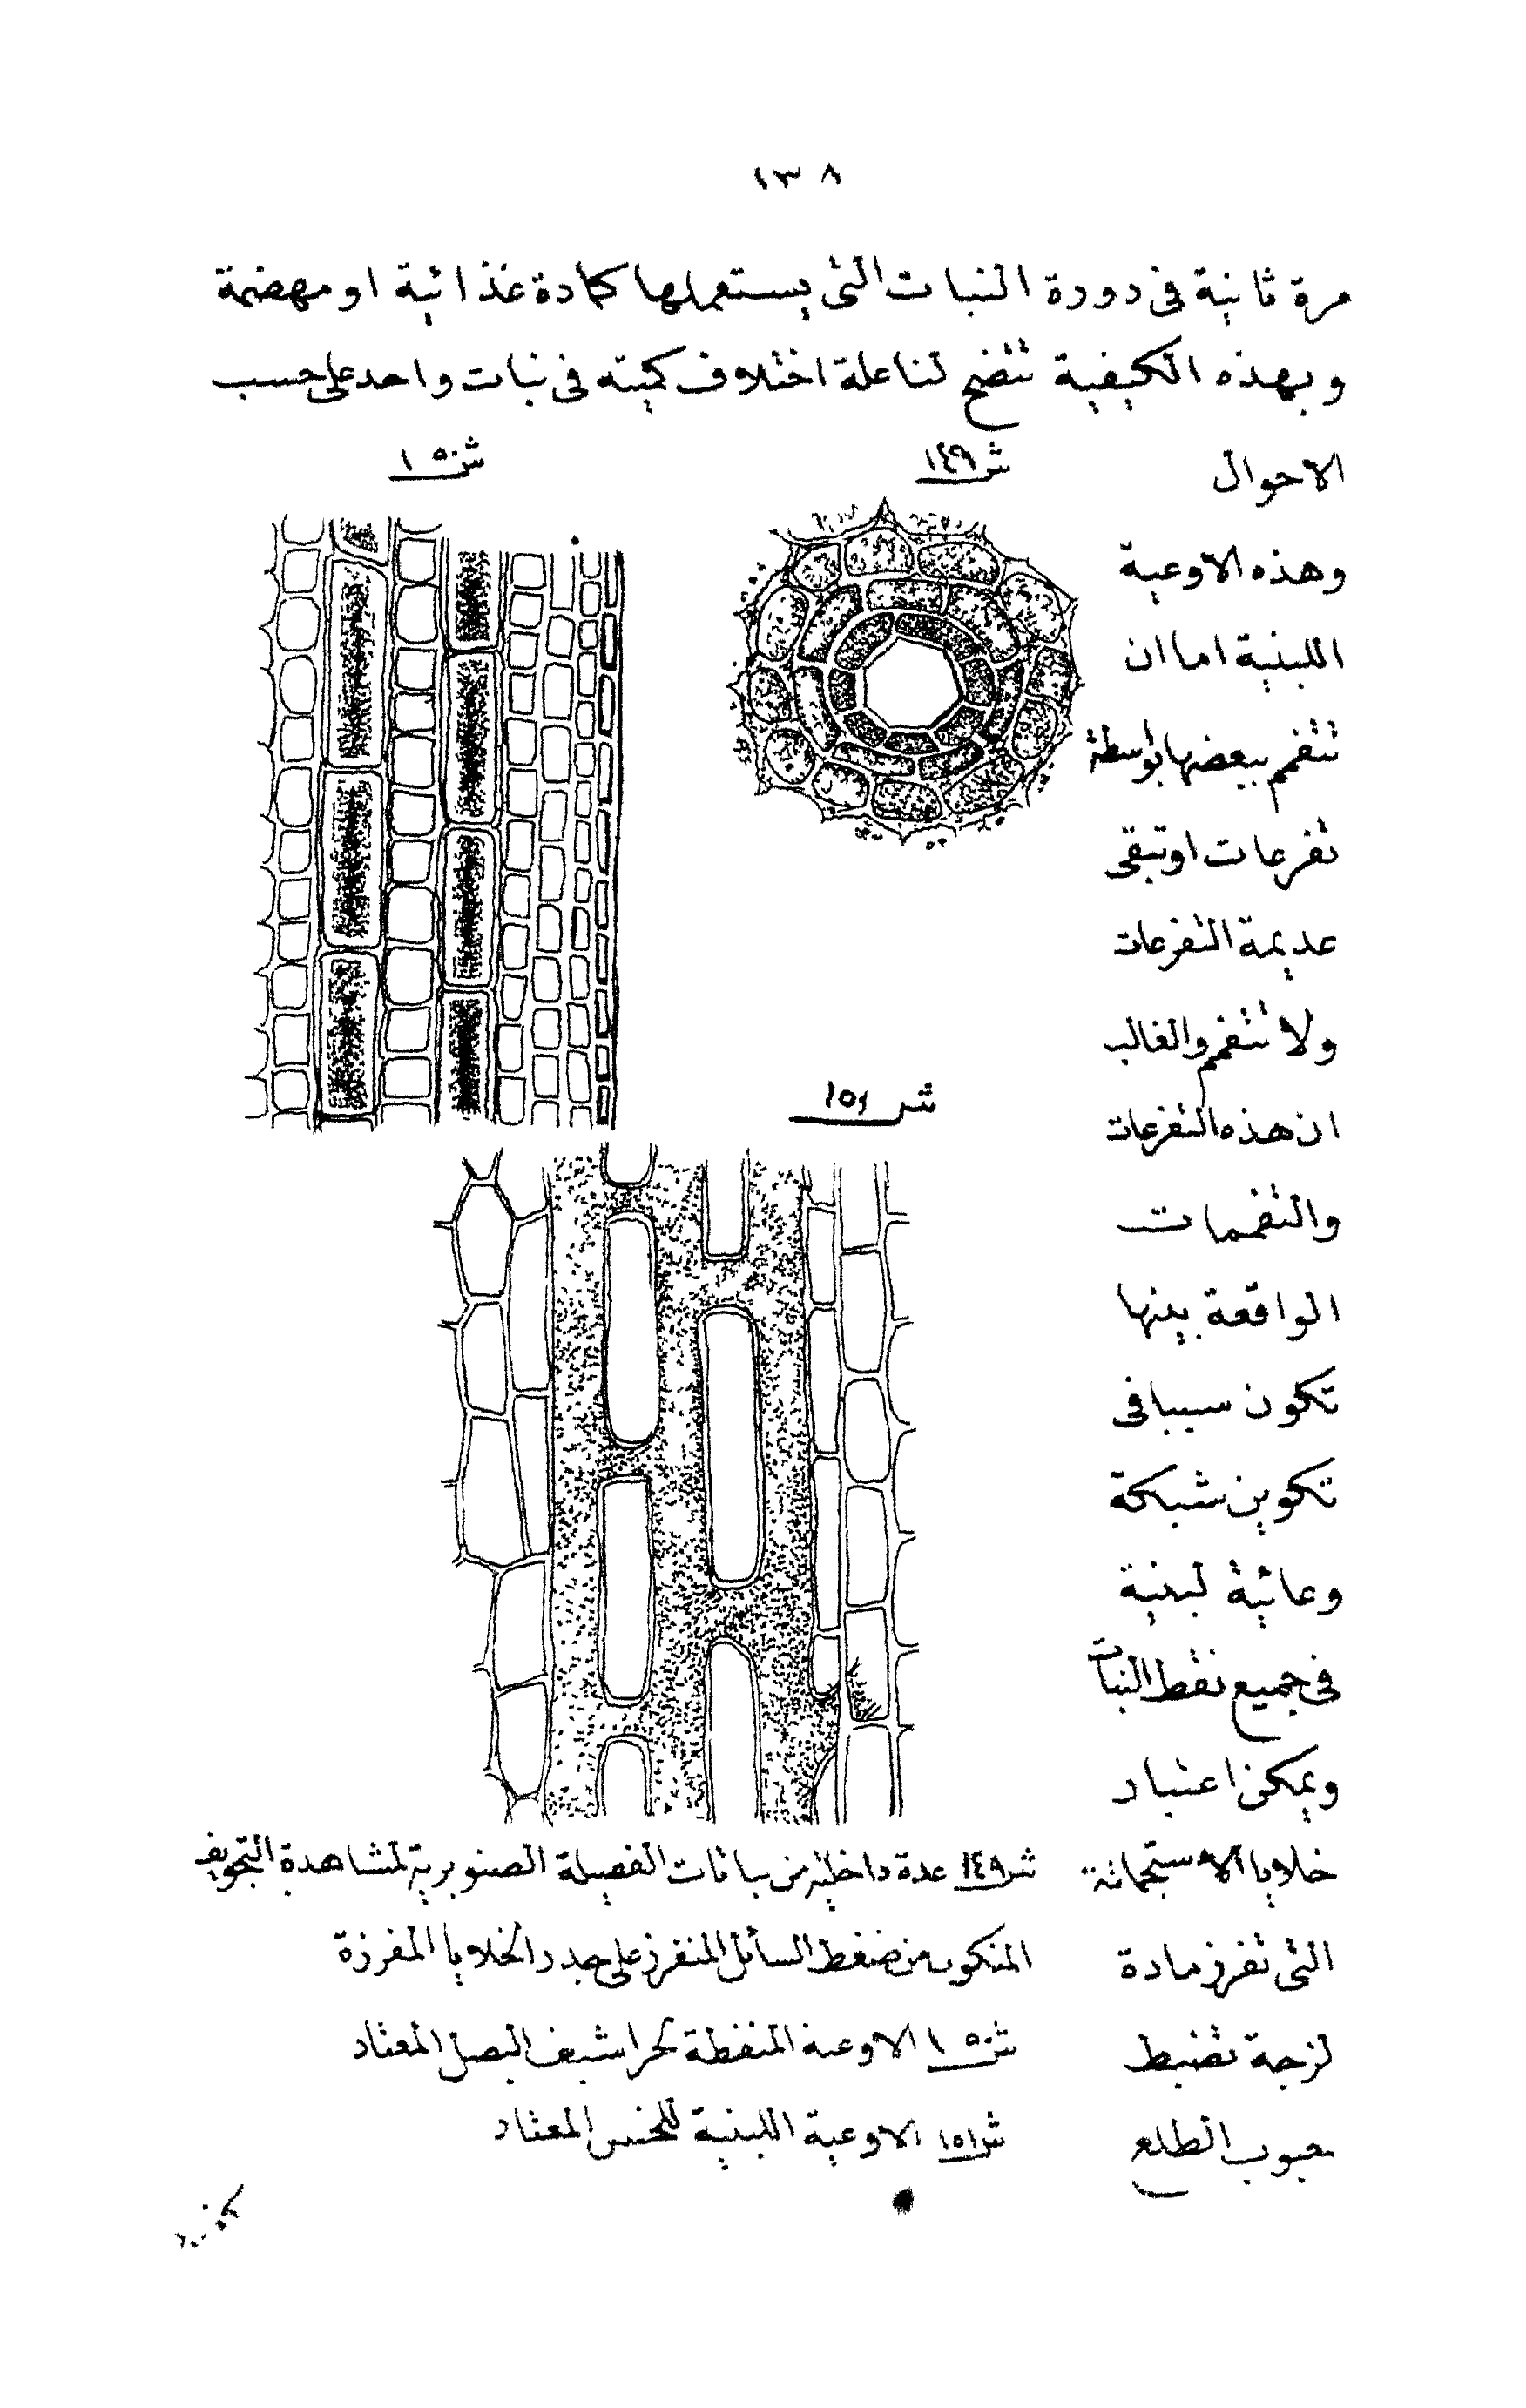 ١٣٨
مرة ثانية فى دورة النبات التى يستعملها كمادة غذائية او مهضمة
وبهذه الكيفية تتضح لنا علة اختلاف كميته فى نبات واحد على حسب
الاحوال
وهذه الاوعية
اللبنية اما ان
تتفمم ببعضها بواسطة
تفرعات او تبقى
عديمة التفرعات
ولا تتفمم والغالب
ان هذه التفرعات
والتفممات
الواقعة بينها
تكون سببا فى
تكوين شبكة
وعائية لبنية
فى جميع نقط النبات
ويمكن اعتبار
خلايا الاستجماتة
التى تفرز مادة
لزجة تضبط
حبوب الطلع
ش ١٤٩
ش ١٥٠
ش ١٥١
ش ١٤٩ غدة داخلية من نباتات الفصيلة الصنوبرية لمشاهدة التجويف
المتكون من ضغط السائل المنفرز على جدر الخلايا المفرزة
ش ١٥٠ الاوعية المنقطة لحراشيف البصل المعتاد
ش ١٥١ الاوعية اللبنية للخس المعتاد